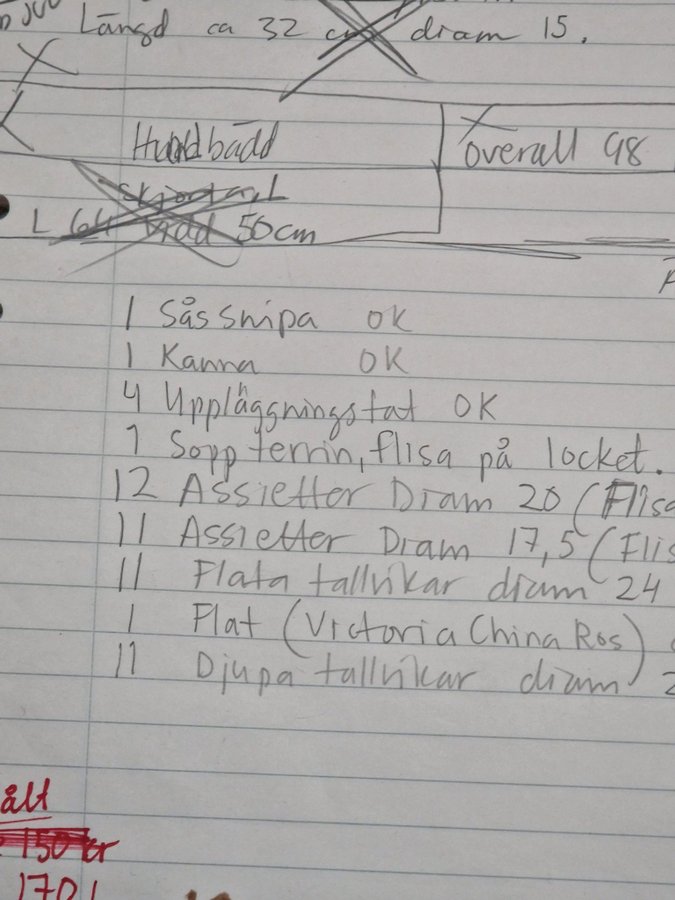 Längd ca 32 cm diam 15.
Hundbädd
overall 98
skjortan, L
L 64 bräd 50cm
1 Såssnipa OK
1 Kanna OK
4 Uppläggningstat OK
1 Sopp terrin, flisa på locket.
12 Assietter Diam 20 (Flisa
11 Assietter Diam 17,5 (Flis
11 Flata tallrikar diam 24
1 Flat (Victoria China Ros)
11 Djupa tallrikar diam 2
ålt
150 kr
170